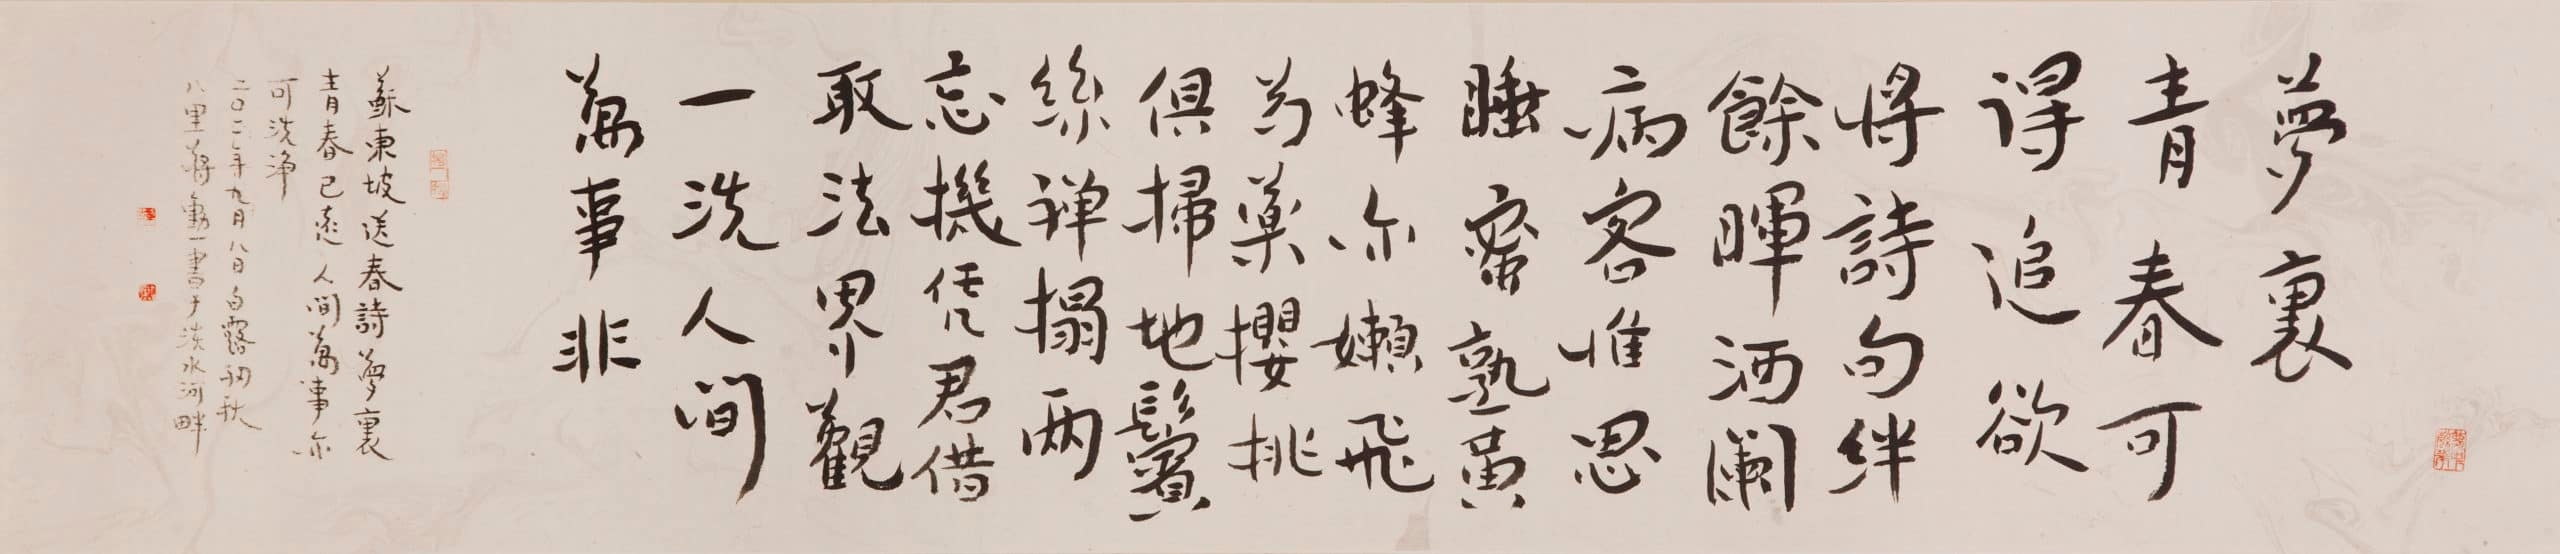 夢裏
青春可
得追欲
將詩句絆
餘暉酒闌
病客惟思
睡蜜熟黃
蜂亦嬾飛
芍藥櫻桃
俱掃地鬢
絲禅榻兩
忘機凭君借
取法界觀
一洗人間
萬事非
蘇東坡送春詩夢裏
青春已遠人間萬事亦
可洗淨
二〇二二年九月八日白露初秋
八里蔣勳書于淡水河畔